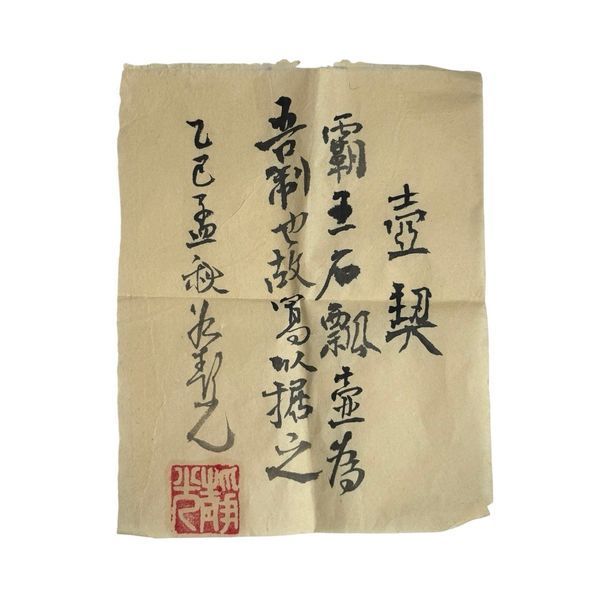 壺契
霸王石瓢壺為
吾制也故寫以据之
乙巳孟秋